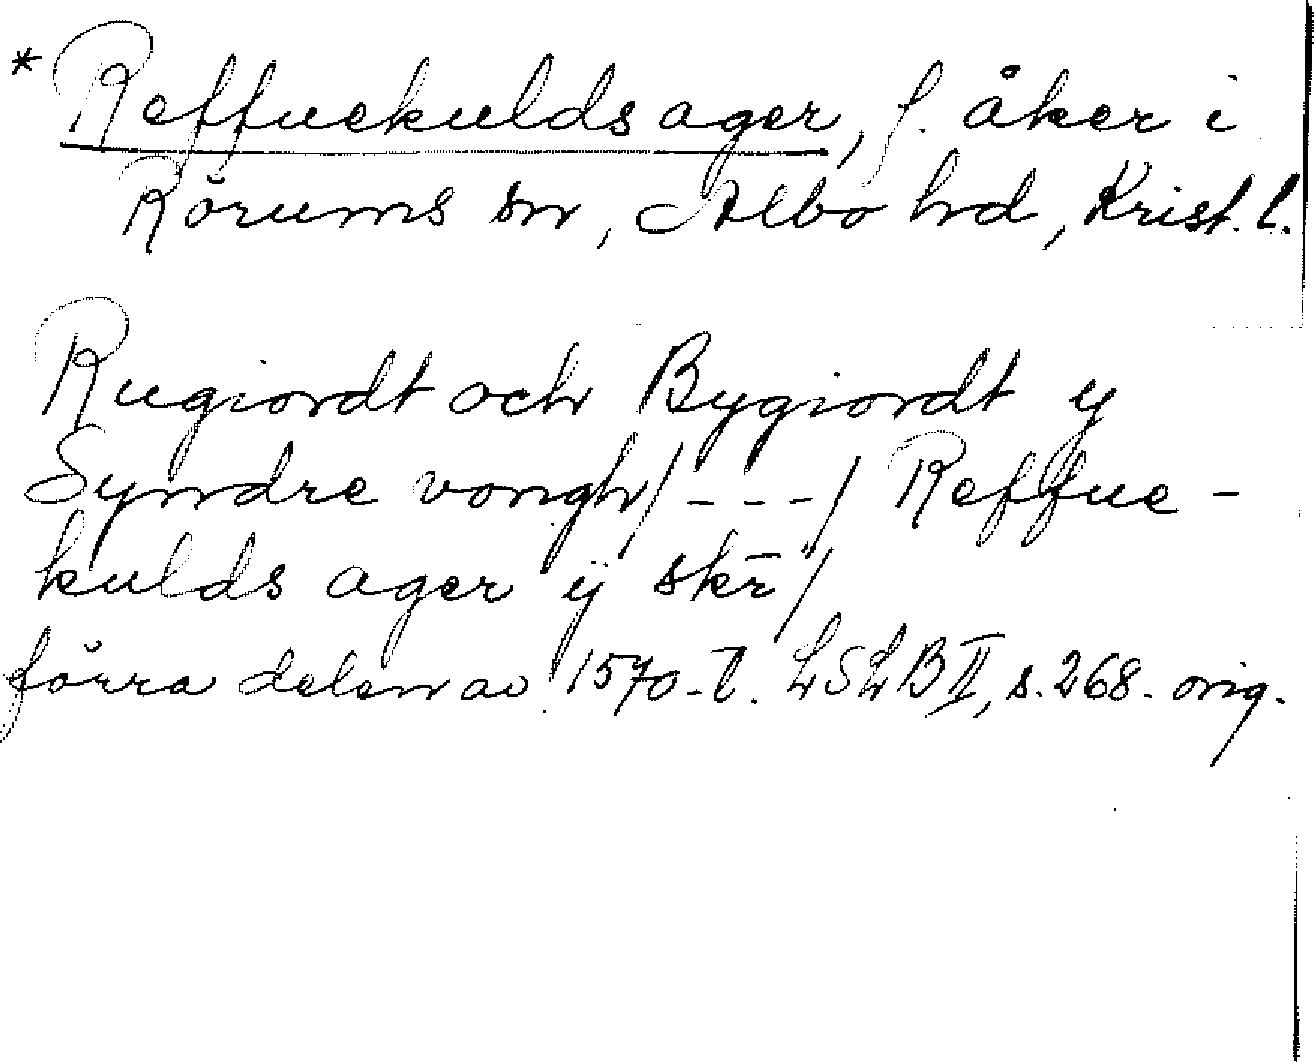 * Reffuekulds ager, f. åker i
Rörums sn, Albo hd, Krist. l.
Rugiordt och Bygiordt y
Syndre vongh/---/ Reffue-
kulds ager ÿ skr̄/
förra delen av 1570-t. LSLB II, s. 268. orig.